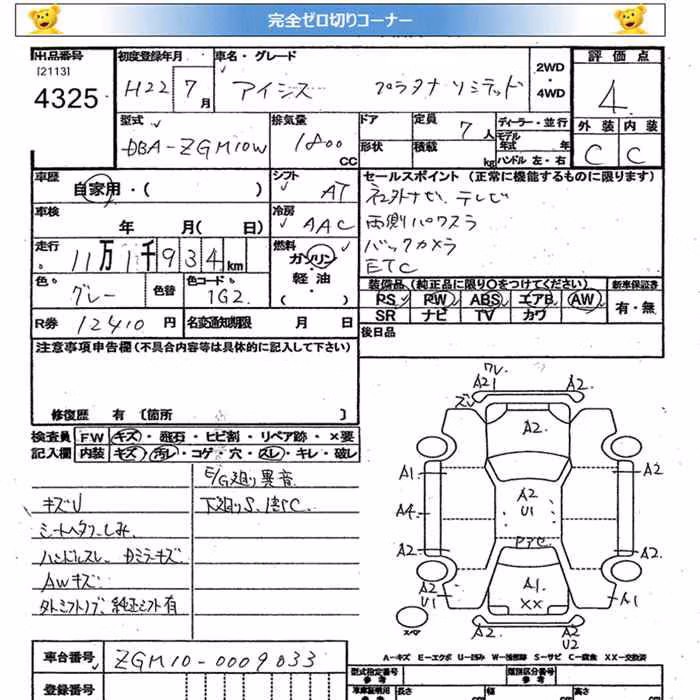 完全ゼロ切りコーナー
出品番号 初度登録年月 車名・グレード 2WD・4WD 評価点
[2113]
4325 H22 7月 アイシス プラタナ リミテッド 4
型式 排気量 ドア 定員 7人 ディーラー・並行 外装 内装
DBA-ZGM10W 1800 CC 形状 積載 kg モデル年式 年 ハンドル 左・右 C C
車歴 自家用・( ) シフト AT セールスポイント (正常に機能するものに限ります)
車検 年 月( 日) 冷房 AAC 社外ナビ、テレビ
両側パワスラ
走行 11万1千934km 燃料 ガソリン・軽油・( ) バックカメラ
ETC
色 グレー 色替 色コード 1G2 装備品 (純正品に限り○をつけてください) 新車保証書
PS PW ABS エアB AW 有・無
SR ナビ TV カワ
R券 12410円 名変通知期限 月 日 後日品
注意事項申告欄 (不具合内容等は具体的に記入して下さい)
修復歴 有 [箇所 ]
検査員記入欄 FW キズ・飛石・ヒビ割・リペア跡・×要
内装 キズ・汚レ・コゲ・穴・スレ・キレ・破レ
E/G廻り異音
キズU 下廻りS、
シートヘタリ、しみ
ハンドルスレ、
AWキズ
純正シフト有
A2 A2
A2
A1 A2 A2
U1
A4
A2 A2
A2 A1 A1
U1 XX
スペア A2 A2
U2
A-キズ E-エクボ U-凹み W-補修跡 S-サビ C-腐食 XX-交換済
車台番号 ZGM10-0009033
型式指定番号 参考 類別区分番号 参考
登録番号 長さ 幅 高さ